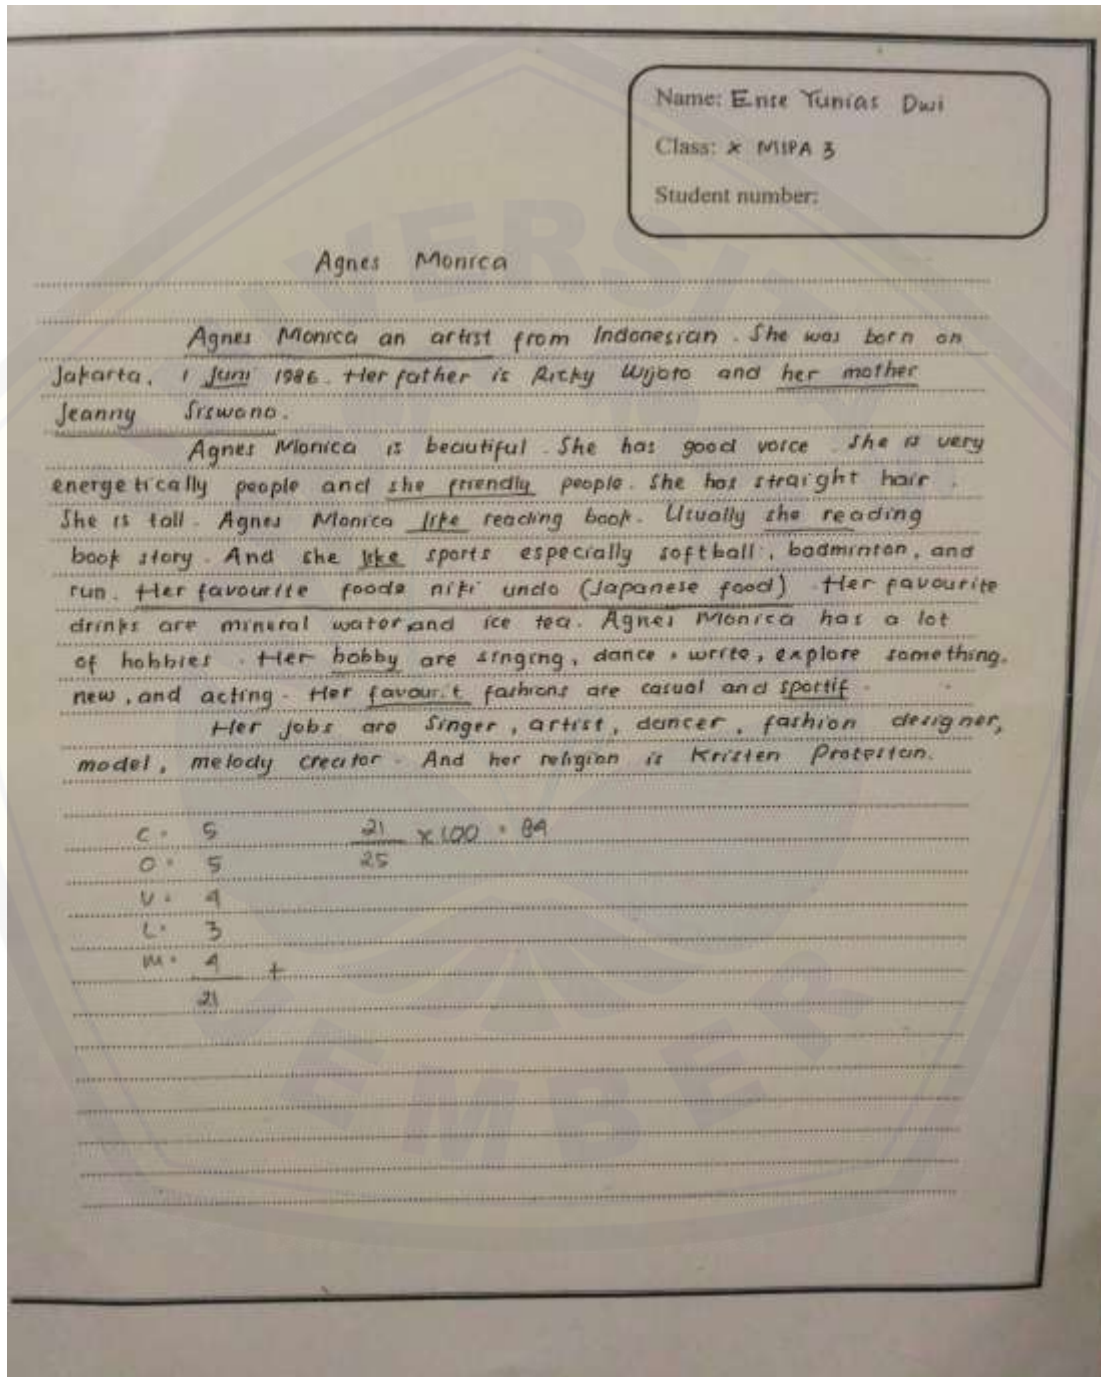 Name: Ense Yunias Dwi
Class: X MIPA 3
Student number:
Agnes Monica
Agnes Monica an artist from Indonesian. She was born on
Jakarta, 1 Juni 1986. Her father is Ricky Wijoto and her mother
Jeanny Siswono.
Agnes Monica is beautiful. She has good voice. She is very
energetically people and she friendly people. She has straight hair.
She is tall. Agnes Monica like reading book. Usually she reading
book story. And she like sports especially softball, badminton, and
run. Her favourite foods niki undo (Japanese food). Her favourite
drinks are mineral water and ice tea. Agnes Monica has a lot
of hobbies. Her hobby are singing, dance, write, explore something
new, and acting. Her favourit fashions are casual and sportif.
Her jobs are Singer, artist, dancer, fashion designer,
model, melody creator. And her religion is Kristen Protestan.
C = 5 21/25 x 100 = 84
O = 5
V = 4
L = 3
M = 4 +
21
UNIVERSITAS
JEMBER